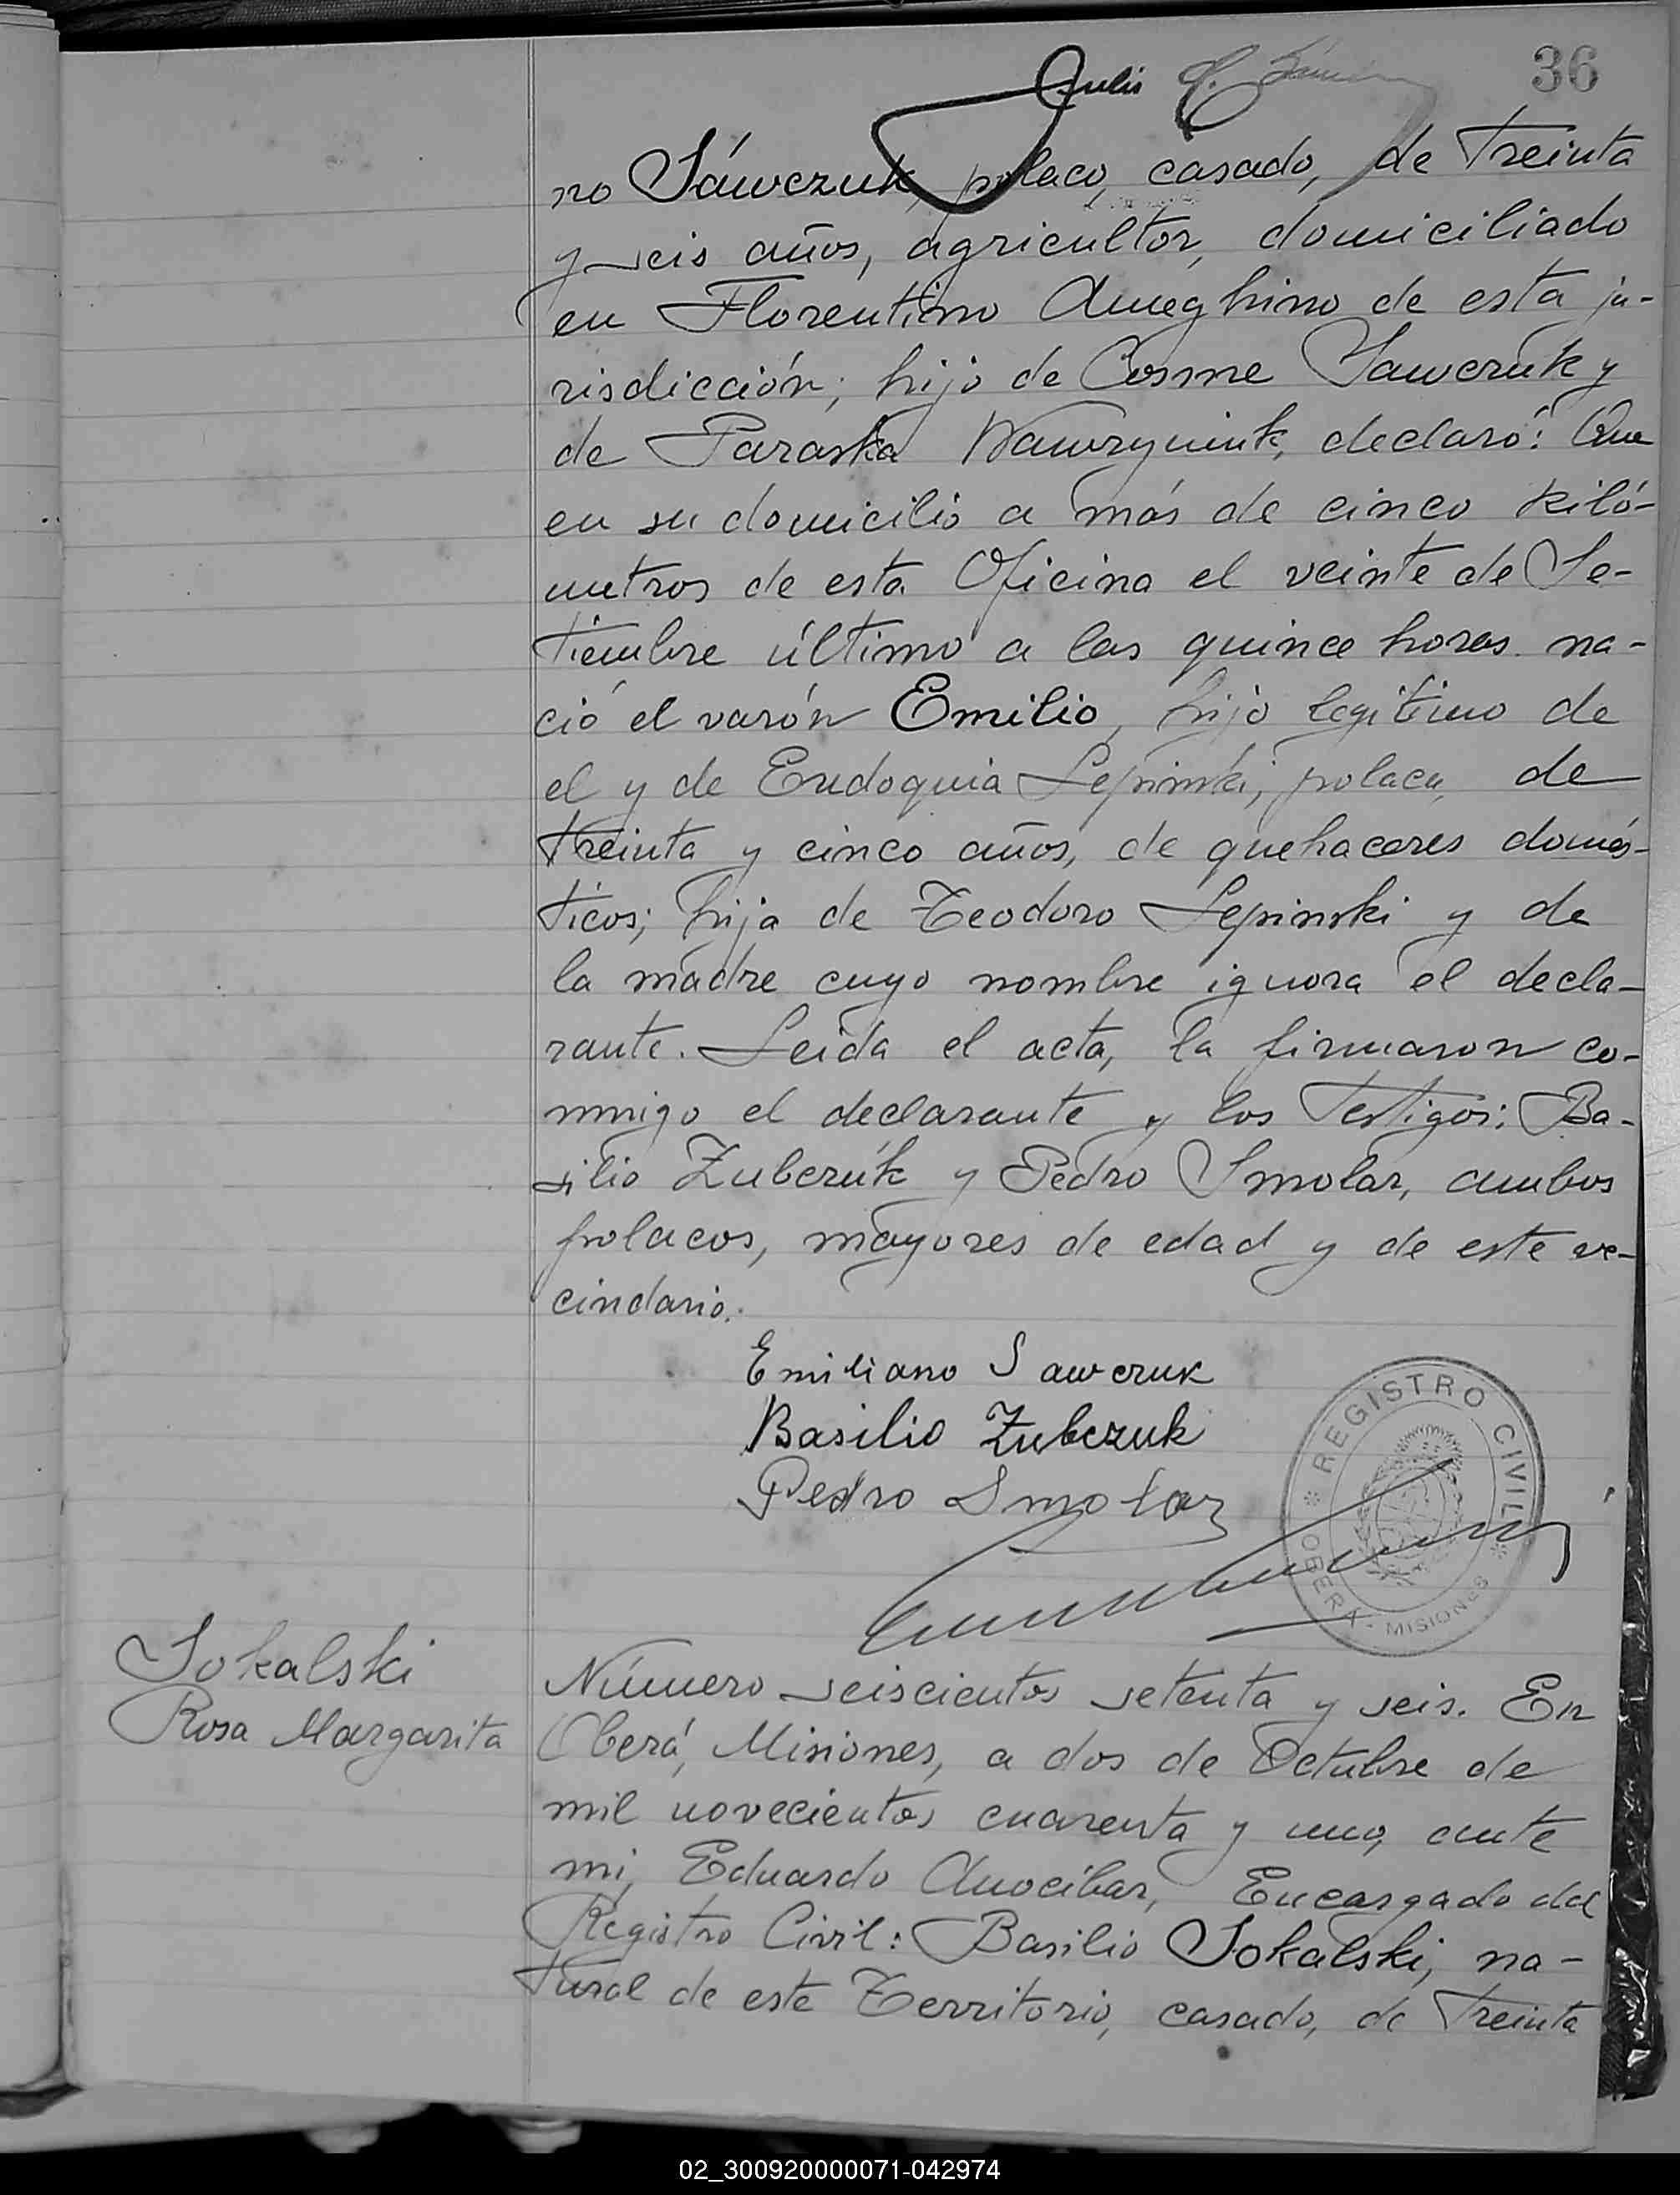 36
Julio
no Sáwczuk, polaco, casado, de treinta
y seis años, agricultor, domiciliado
en Florentino Ameghino de esta ju-
risdicción; hijo de Cosme Sawczuk y
de Paraska Wawryniuk, declaró: Que
en su domicilio a más de cinco kiló-
metros de esta Oficina el veinte de Se-
tiembre último a las quince horas na-
ció el varón Emilio, hijo legitimo de
el y de Eudoquia Lepinski, polaca, de
treinta y cinco años, de quehaceres domés-
ticos; hija de Teodoro Lepinski y de
la madre cuyo nombre ignora el decla-
rante. Leida el acta, la firmaron co-
nmigo el declarante y los testigos: Ba-
silio Zubczuk y Pedro Smolar, ambos
polacos, mayores de edad y de este ve-
cindario.
Emiliano Sawczuk
Basilio Zubczuk
Pedro Smolar
REGISTRO CIVIL
OBERA - MISIONES
Sokalski
Rosa Margarita
Número seiscientos setenta y seis. En
Oberá, Misiones, a dos de Octubre de
mil novecientos cuarenta y uno, ante
mi, Eduardo Anocíbar, Encargado del
Registro Civil: Basilio Sokalski, na-
tural de este Territorio, casado, de treinta
02_300920000071-042974